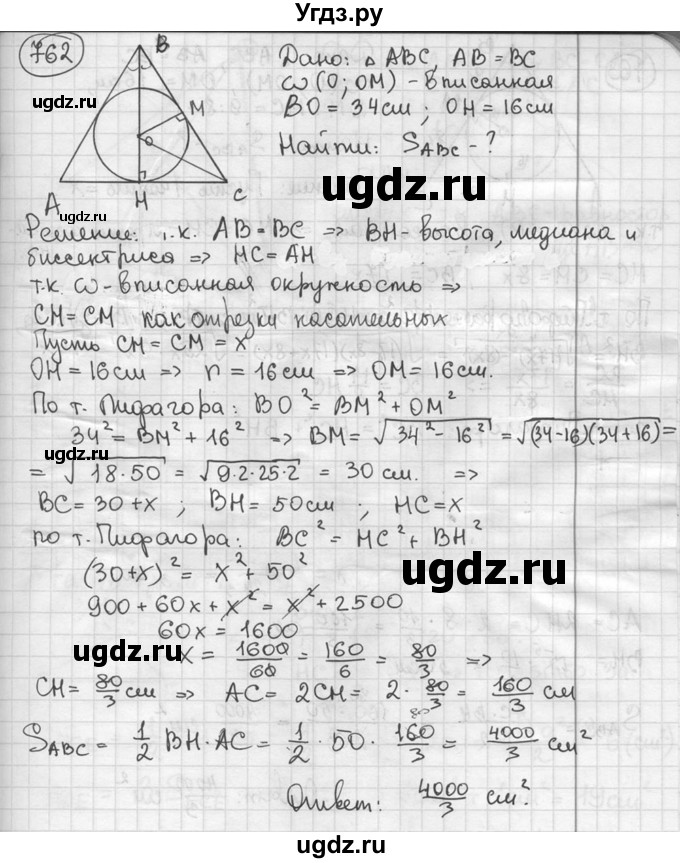 Угдз.ру
762
B
M
O
A
H
C
Дано: △ ABC, AB = BC
ω (O; OM) - вписанная
BO = 34 см ; OH = 16 см
Найти: S_ABC - ?
ugdz.ru
ugdz.ru
ugdz.ru
ugdz.ru
Решение: т.к. AB = BC => BH - высота, медиана и
биссектриса => HC = AH
т.к. ω - вписанная окружность =>
CH = CM как отрезки касательных
Пусть CH = CM = x
OH = 16 см => r = 16 см => OM = 16 см.
По т. Пифагора: BO² = BM² + OM²
34² = BM² + 16² => BM = √(34² - 16²) = √((34-16)(34+16)) =
= √(18·50) = √(9·2·25·2) = 30 см. =>
BC = 30 + x ; BH = 50 см ; HC = x
по т. Пифагора: BC² = HC² + BH²
(30+x)² = x² + 50²
900 + 60x + x² = x² + 2500
60x = 1600
x = 1600/60 = 160/6 = 80/3 =>
CH = 80/3 см => AC = 2CH = 2 · 80/3 = 160/3 см
S_ABC = 1/2 BH · AC = 1/2 · 50 · 160/3 = 4000/3 см²
80
Ответ: 4000/3 см².
ugdz.ru
ugdz.ru
ugdz.ru
ugdz.ru
ugdz.ru